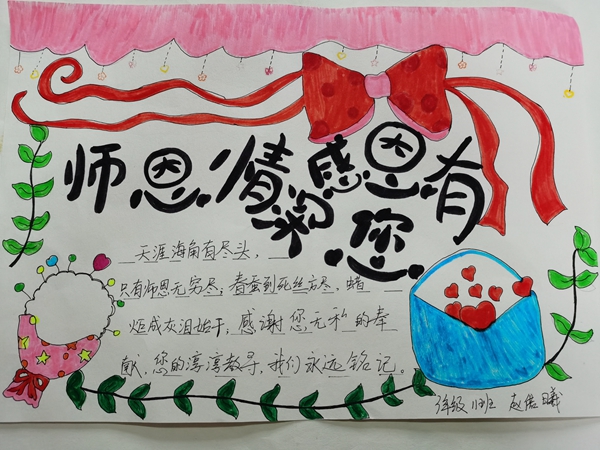 师恩情感恩有
您
天涯海角有尽头，
只有师恩无穷尽；春蚕到死丝方尽，蜡
炬成灰泪始干；感谢您无私的奉
献、您的谆谆教导，我们永远铭记。
年级 班 赵